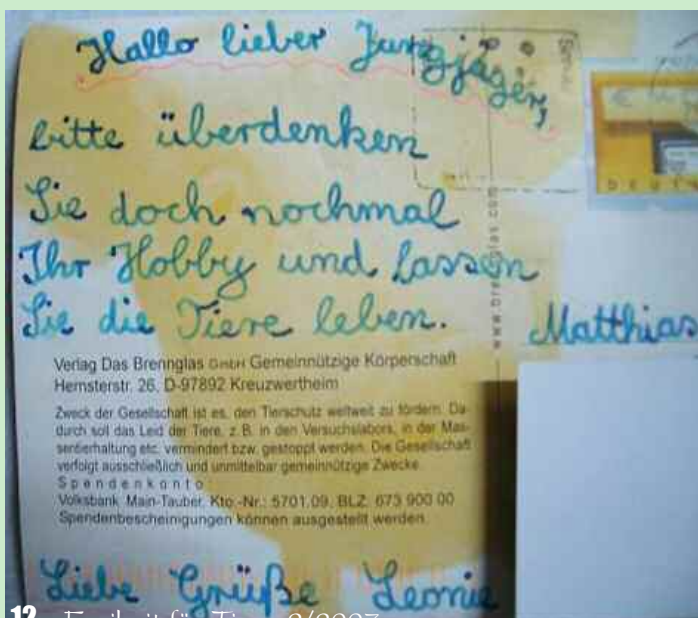 Hallo lieber Jungjäger,
bitte überdenken
Sie doch nochmal
Ihr Hobby und lassen
Sie die Tiere leben.
Matthias
www.brennglas.com
Verlag Das Brennglas GmbH Gemeinnützige Körperschaft
Hernsterstr. 26, D-97892 Kreuzwertheim
Zweck der Gesellschaft ist es, den Tierschutz weltweit zu fördern. Da-
durch soll das Leid der Tiere, z.B. in den Versuchslabors, in der Mas-
sentierhaltung etc. vermindert bzw. gestoppt werden. Die Gesellschaft
verfolgt ausschließlich und unmittelbar gemeinnützige Zwecke.
Spendenkonto
Volksbank Main-Tauber, Kto.-Nr.: 5701.09, BLZ: 673 900 00
Spendenbescheinigungen können ausgestellt werden.
Liebe Grüße Leonie
12